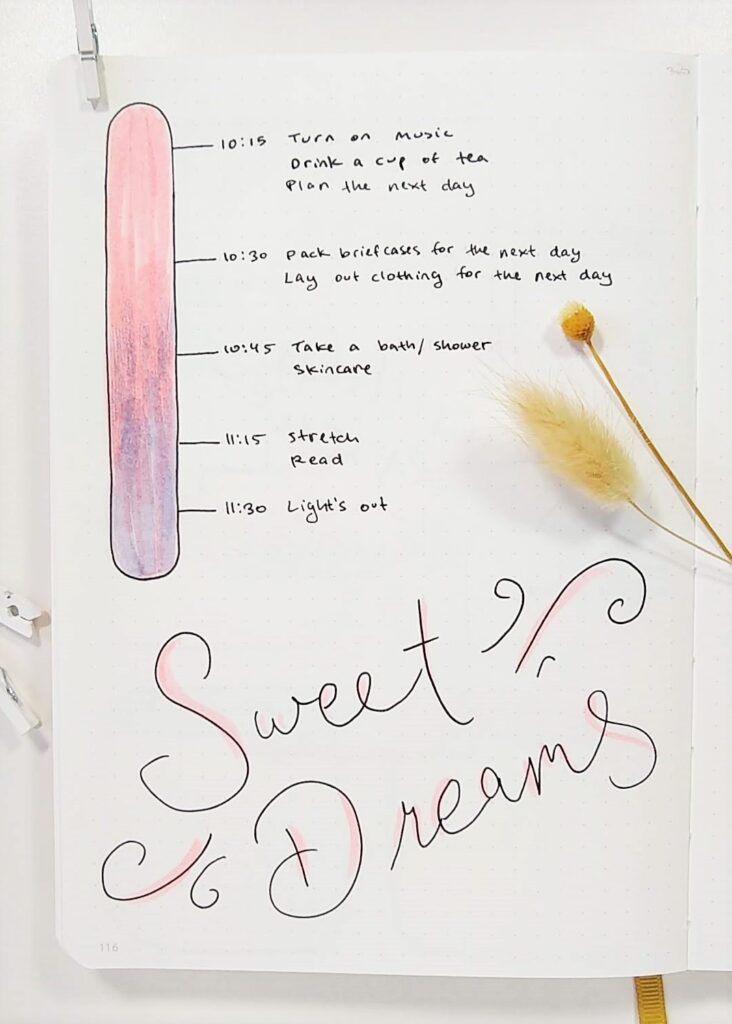 10:15 Turn on music
Drink a cup of tea
Plan the next day
10:30 Pack briefcases for the next day
Lay out clothing for the next day
10:45 Take a bath/shower
skincare
11:15 stretch
Read
11:30 Light's out
Sweet
Dreams
116